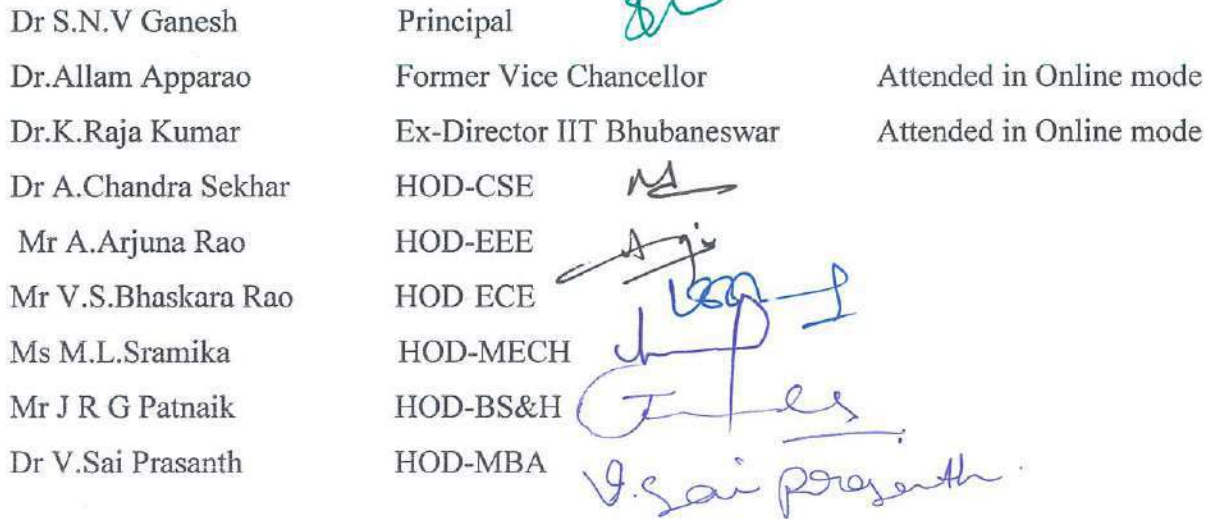 Dr S.N.V Ganesh Principal
Dr.Allam Apparao Former Vice Chancellor Attended in Online mode
Dr.K.Raja Kumar Ex-Director IIT Bhubaneswar Attended in Online mode
Dr A.Chandra Sekhar HOD-CSE
Mr A.Arjuna Rao HOD-EEE
Mr V.S.Bhaskara Rao HOD ECE
Ms M.L.Sramika HOD-MECH
Mr J R G Patnaik HOD-BS&H
Dr V.Sai Prasanth HOD-MBA V.Sai Prasanth